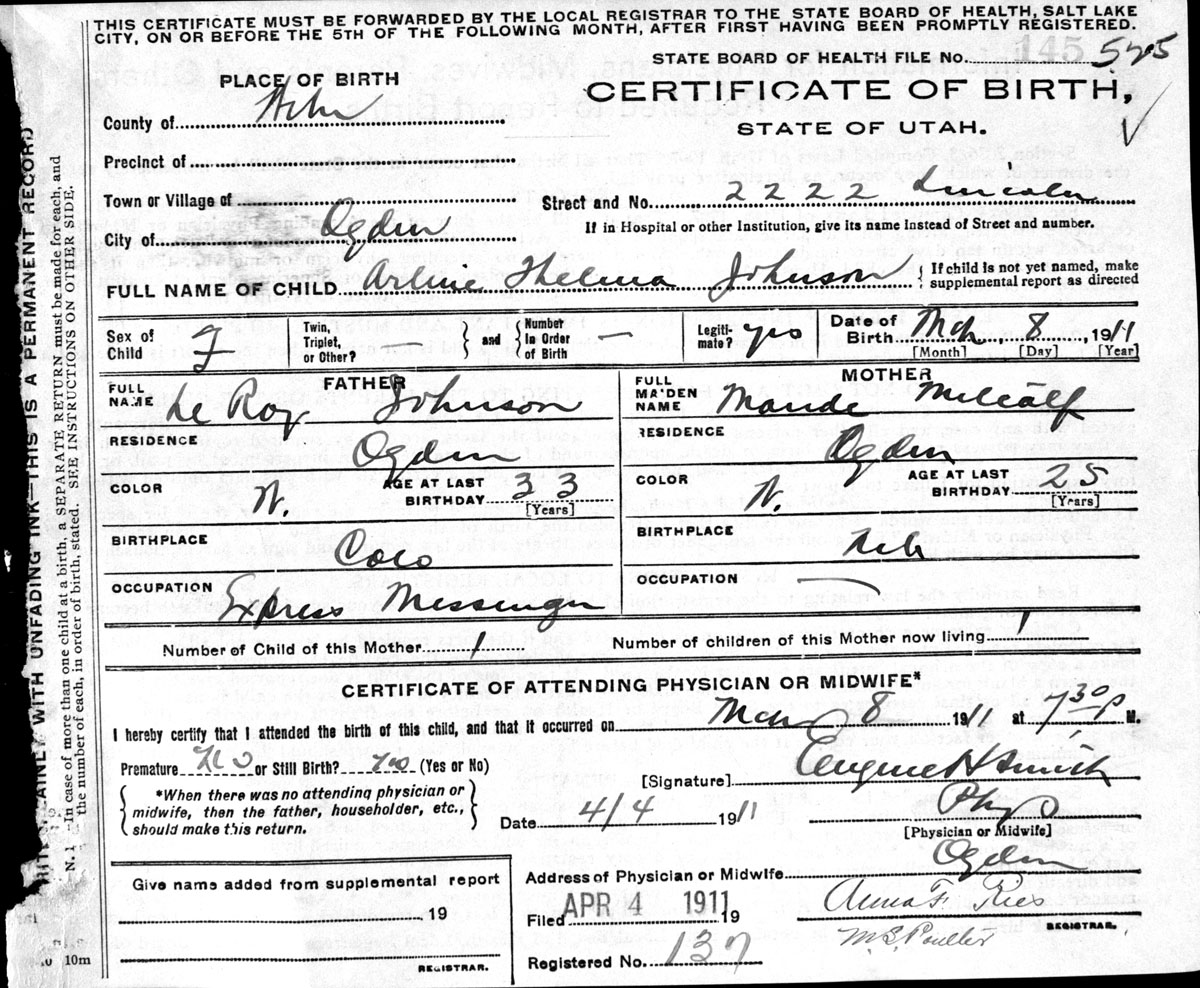 THIS CERTIFICATE MUST BE FORWARDED BY THE LOCAL REGISTRAR TO THE STATE BOARD OF HEALTH, SALT LAKE
CITY, ON OR BEFORE THE 5TH OF THE FOLLOWING MONTH, AFTER FIRST HAVING BEEN PROMPTLY REGISTERED.
STATE BOARD OF HEALTH FILE NO. 145 525
PLACE OF BIRTH
CERTIFICATE OF BIRTH,
STATE OF UTAH.
County of Weber
Precinct of
Town or Village of
Street and No. 2222 Lincoln
City of Ogden
If in Hospital or other Institution, give its name instead of Street and number.
FULL NAME OF CHILD Arline Thelma Johnson { If child is not yet named, make supplemental report as directed
Sex of Child F
Twin, Triplet, or Other? —
and
Number in Order of Birth —
Legiti-mate? yes
Date of Birth Mch, 8, 1911
[Month] [Day] [Year]
FATHER
FULL NAME Le Roy Johnson
RESIDENCE Ogden
COLOR W. AGE AT LAST BIRTHDAY 33
[Years]
BIRTHPLACE Colo
OCCUPATION Express Messenger
MOTHER
FULL MAIDEN NAME Maude Metcalf
RESIDENCE Ogden
COLOR W. AGE AT LAST BIRTHDAY 25
[Years]
BIRTHPLACE Neb
OCCUPATION —
Number of Child of this Mother 1 Number of children of this Mother now living 1
CERTIFICATE OF ATTENDING PHYSICIAN OR MIDWIFE*
I hereby certify that I attended the birth of this child, and that it occurred on Mch 8 1911 at 7 30 P M.
Premature No or Still Birth? No (Yes or No)
[Signature] Eugene H Smith
{ *When there was no attending physician or
midwife, then the father, householder, etc.,
should make this return. }
Date 4/4 1911
Phys
[Physician or Midwife]
Address of Physician or Midwife Ogden
Give name added from supplemental report
19
REGISTRAR.
Filed APR 4 1911 19
Anna F. Ries
REGISTRAR.
Registered No. 137
WITH UNFADING INK—THIS IS A PERMANENT RECORD
In case of more than one child at a birth, a SEPARATE RETURN must be made for each, and
the number of each, in order of birth, stated. SEE INSTRUCTIONS ON OTHER SIDE.
10m